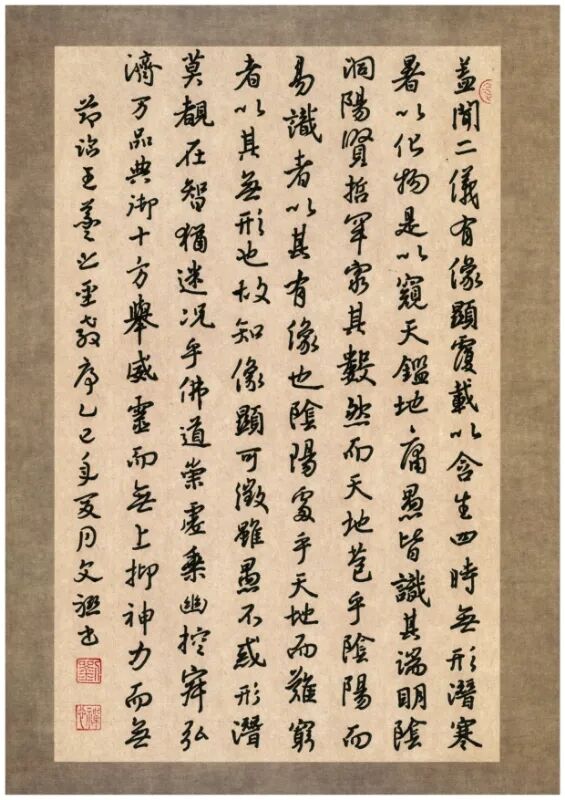 盖聞二儀有像顯覆載以含生四時無形潛寒
暑以化物是以窺天鑑地庸愚皆識其端明陰
洞陽賢哲罕窮其數然而天地苞乎陰陽而
易識者以其有像也陰陽處乎天地而難窮
者以其無形也故知像顯可徵雖愚不惑形潛
莫覩在智猶迷況乎佛道崇虛乘幽控寂弘
濟万品典御十方舉威靈而無上抑神力而無
節臨王羲之聖教序乙巳年夏月文書